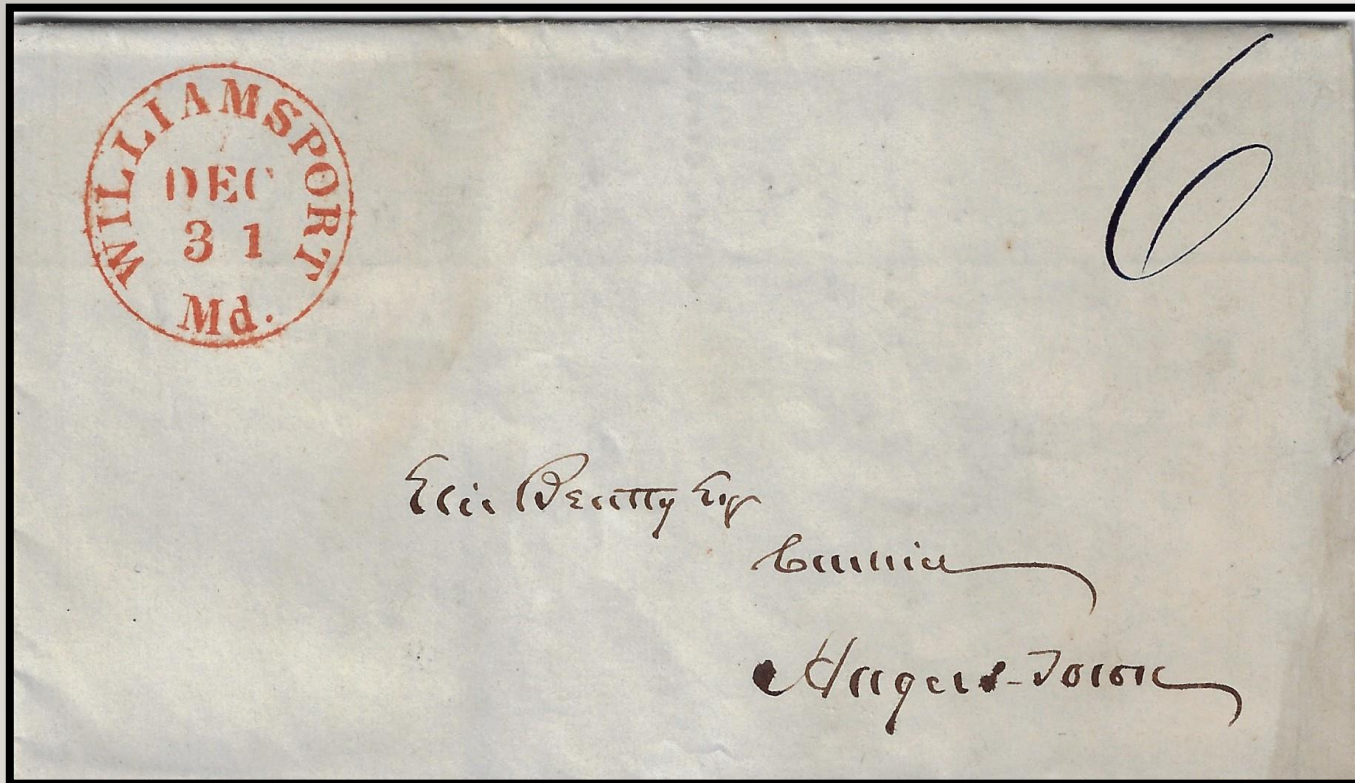 WILLIAMSPORT
DEC
31
Md.
6
Elie Beatty Esq
Cashier
Hagers-Town